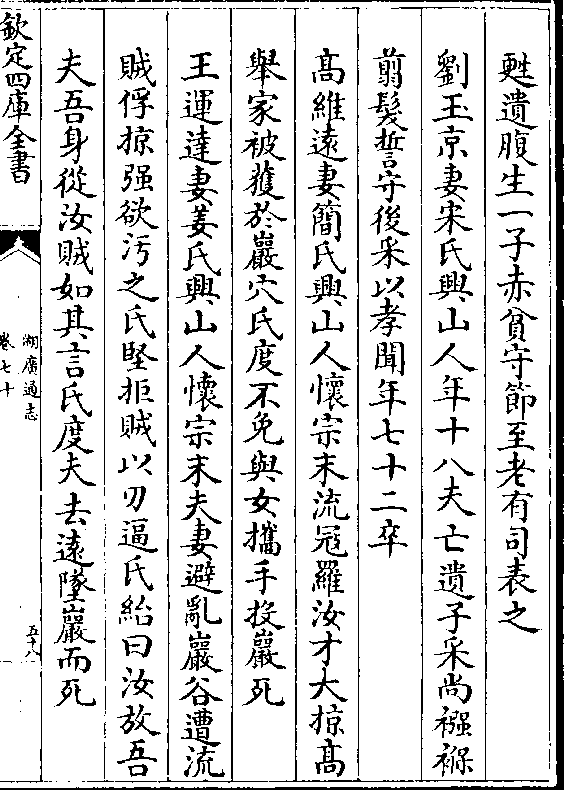 甦遺腹生一子赤貧守節至老有司表之
劉玉京妻宋氏興山人年十八夫亡遺子采尚襁褓
翦髮誓守後采以孝聞年七十二卒
高維遠妻簡氏興山人懷宗末流冦羅汝才大掠高
舉家被獲於巖穴氏度不免與女攜手投巖死
王運達妻姜氏興山人懷宗末夫妻避亂巖谷遭流
賊俘掠强欲污之氏堅拒賊以刃逼氏紿曰汝放吾
夫吾身從汝賊如其言氏度夫去遠墜巖而死
欽定四庫全書
湖廣通志
卷七十
五十八